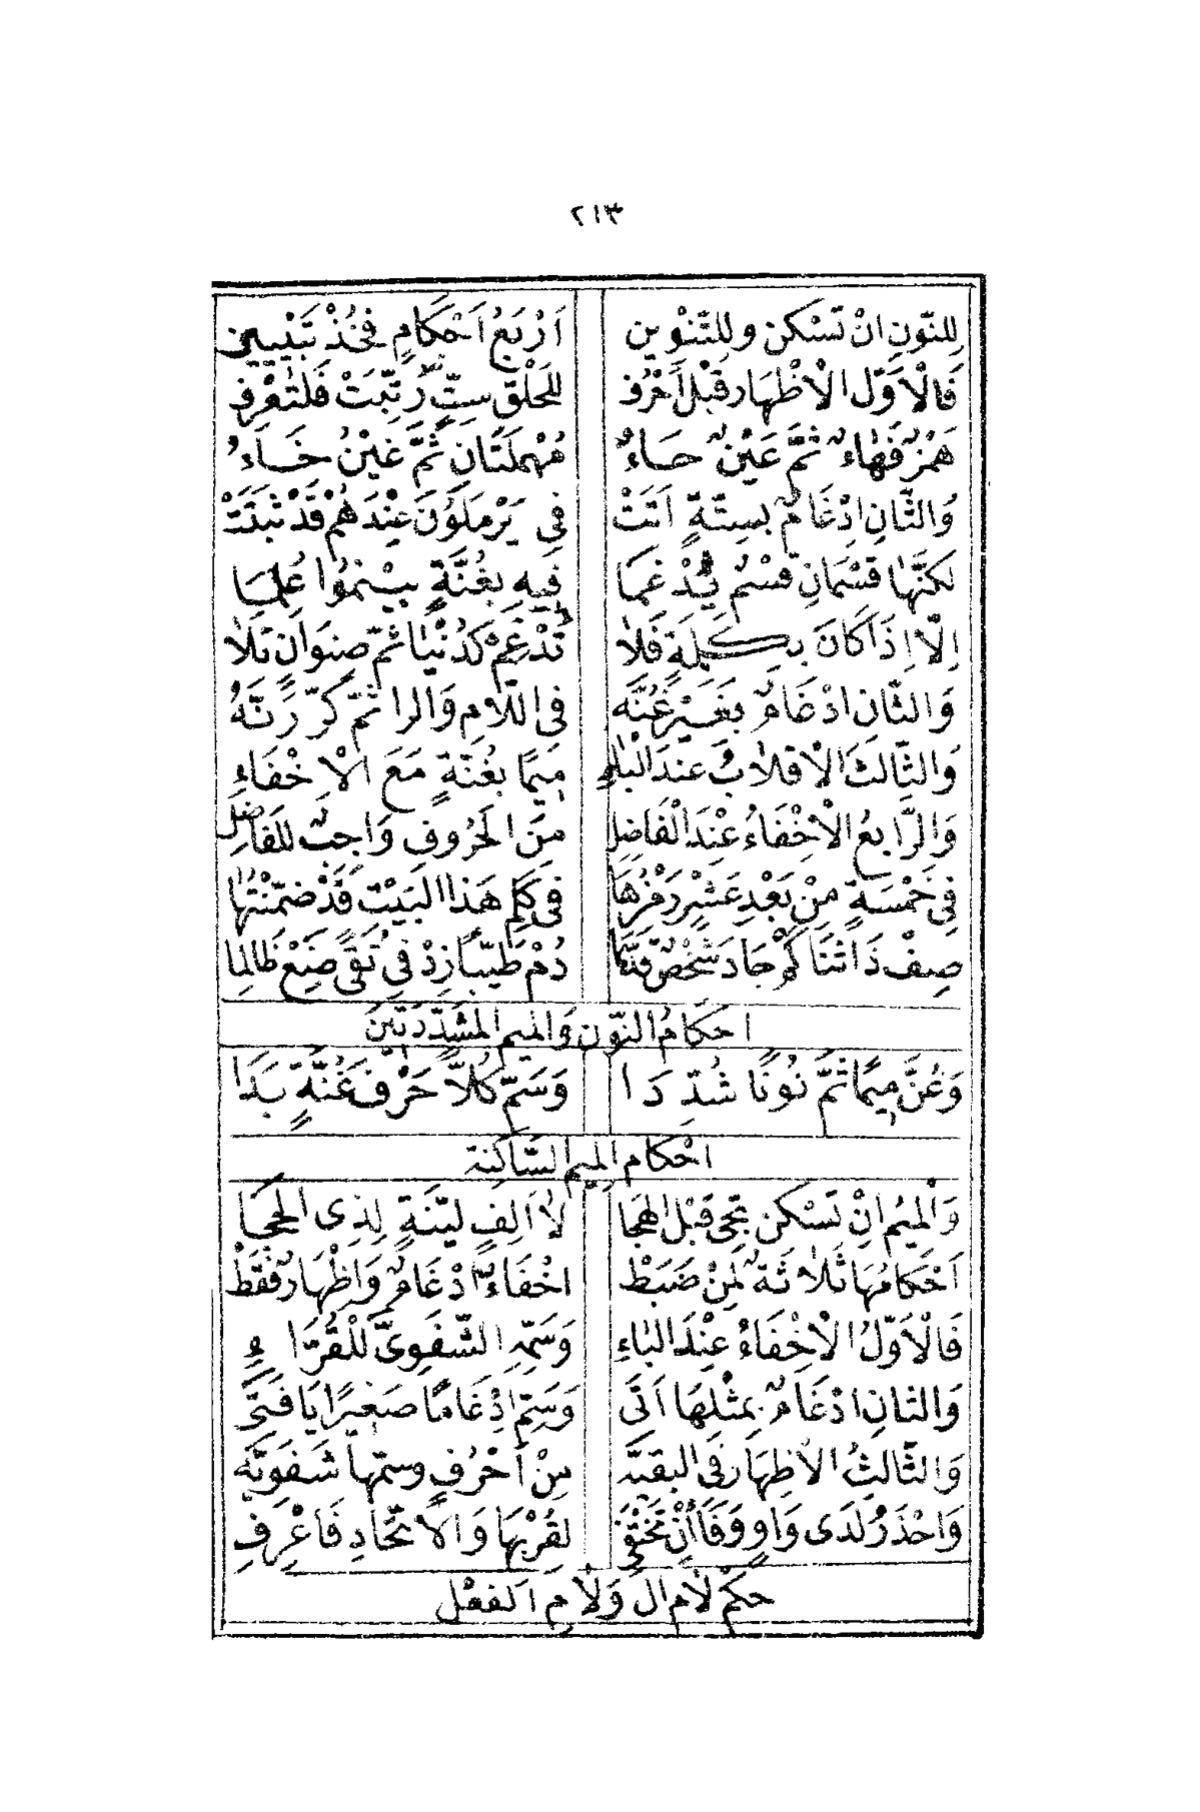 ٢١٣
لِلنُّونِ اِنْ تَسْكُنْ وَلِلتَّنْوِينِ اَرْبَعُ اَحْكَامٍ فَخُذْ تَبْيِينِي
فَالْاَوَّلُ الْاِظْهَارُ قَبْلَ اَحْرُفِ لِلْحَلْقِ سِتٍّ رُتِّبَتْ فَلْتَعْرِفِ
هَمْزٌ فَهَاءٌ ثُمَّ عَيْنٌ حَاءٌ مُهْمَلَتَانِ ثُمَّ غَيْنٌ خَاءٌ
وَالثَّانِ اِدْغَامٌ بِسِتَّةٍ اَتَتْ فِي يَرْمَلُونَ عِنْدَهُمْ قَدْ ثَبَتَتْ
لَكِنَّهَا قِسْمَانِ قِسْمٌ يُدْغَمَا فِيهِ بِغُنَّةٍ بِيَنْمُوا عُلِمَا
اِلَّا اِذَا كَانَ بِكِلْمَةٍ فَلَا تُدْغِمْ كَدُنْيَا ثُمَّ صِنْوَانٍ تَلَا
وَالثَّانِ اِدْغَامٌ بِغَيْرِ غُنَّه فِي اللَّامِ وَالرَا ثُمَّ كَرِّرَنَّهُ
وَالثَّالِثُ الْاِقْلَابُ عِنْدَ الْبَاءِ مِيمًا بِغُنَّةٍ مَعَ الْاِخْفَاءِ
وَالرَّابِعُ الْاِخْفَاءُ عِنْدَ الْفَاضِلِ مِنَ الْحُرُوفِ وَاجِبٌ لِلْفَاضِلِ
فِي خَمْسَةٍ مِنْ بَعْدِ عَشْرٍ رَمْزُهَا فِي كِلْمِ هَذَا الْبَيْتِ قَدْ ضَمَّنْتُهَا
صِفْ ذَا ثَنَا كَمْ جَادَ شَخْصٌ قَدْ سَمَا دُمْ طَيِّبًا زِدْ فِي تُقًى ضَعْ ظَالِمَا
اَحْكَامُ النُّونِ وَالْمِيمِ الْمُشَدَّدَتَيْنِ
وَغُنَّ مِيمًا ثُمَّ نُونًا شُدِّدَا وَسَمِّ كُلًّا حَرْفَ غُنَّةٍ بَدَا
اَحْكَامُ الْمِيمِ السَّاكِنَةِ
وَالْمِيمُ اِنْ تَسْكُنْ تَجِى قَبْلَ الْهِجَا لَا اَلِفٍ لَيِّنَةٍ لِذِى الْحِجَا
اَحْكَامُهَا ثَلَاثَةٌ لِمَنْ ضَبَطْ اِخْفَاءٌ اِدْغَامٌ وَاِظْهَارٌ فَقَطْ
فَالْاَوَّلُ الْاِخْفَاءُ عِنْدَ الْبَاءِ وَسَمِّهِ الشَّفَوِيَّ لِلْقُرَّاءِ
وَالثَانِ اِدْغَامٌ بِمِثْلِهَا اَتَى وَسَمِّ اِدْغَامًا صَغِيرًا يَا فَتَى
وَالثَّالِثُ الْاِظْهَارُ فِي الْبَقِيَّه مِنْ اَحْرُفٍ وَسَمِّهَا شَفَوِيَّه
وَاحْذَرْ لَدَى وَاوٍ وَفَا اَنْ تَخْتَفِى لِقُرْبِهَا وَالْاِتِّحَادِ فَاعْرِفِ
حُكْمُ لَامِ الْ وَلَامِ الْفِعْلِ